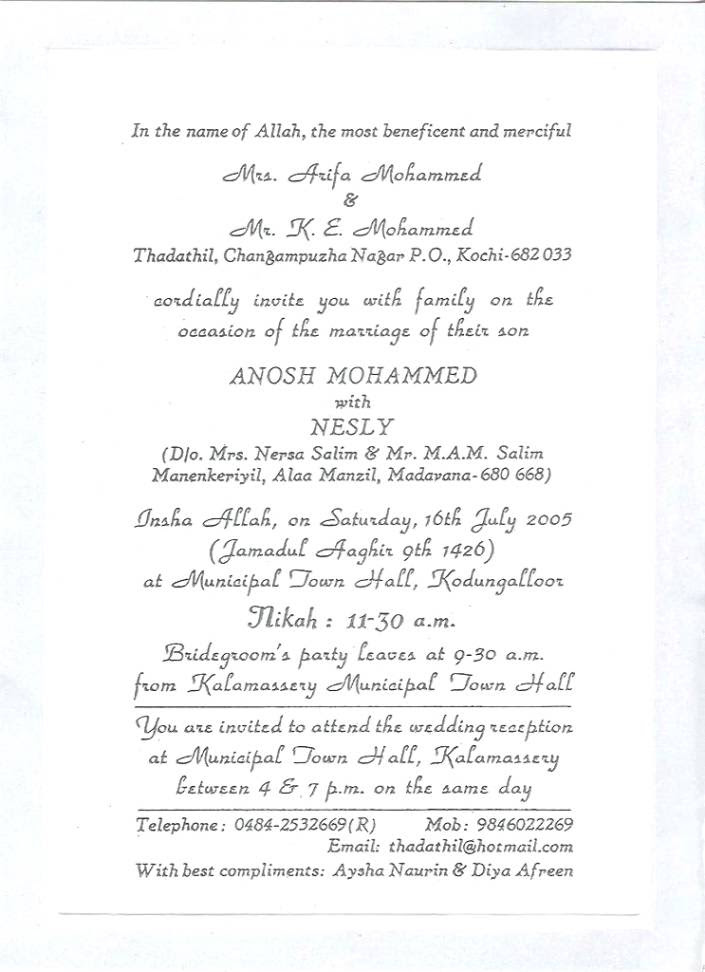 In the name of Allah, the most beneficent and merciful
Mrs. Arifa Mohammed
&
Mr. K. E. Mohammed
Thadathil, Changampuzha Nagar P.O., Kochi-682 033
cordially invite you with family on the
occasion of the marriage of their son
ANOSH MOHAMMED
with
NESLY
(D/o. Mrs. Nersa Salim & Mr. M.A.M. Salim
Manenkeriyil, Alaa Manzil, Madavana-680 668)
Insha Allah, on Saturday, 16th July 2005
(Jamadul Aaghir 9th 1426)
at Municipal Town Hall, Kodungalloor
Nikah : 11-30 a.m.
Bridegroom's party leaves at 9-30 a.m.
from Kalamassery Municipal Town Hall
You are invited to attend the wedding reception
at Municipal Town Hall, Kalamassery
between 4 & 7 p.m. on the same day
Telephone: 0484-2532669(R) Mob: 9846022269
Email: thadathil@hotmail.com
With best compliments: Aysha Naurin & Diya Afreen